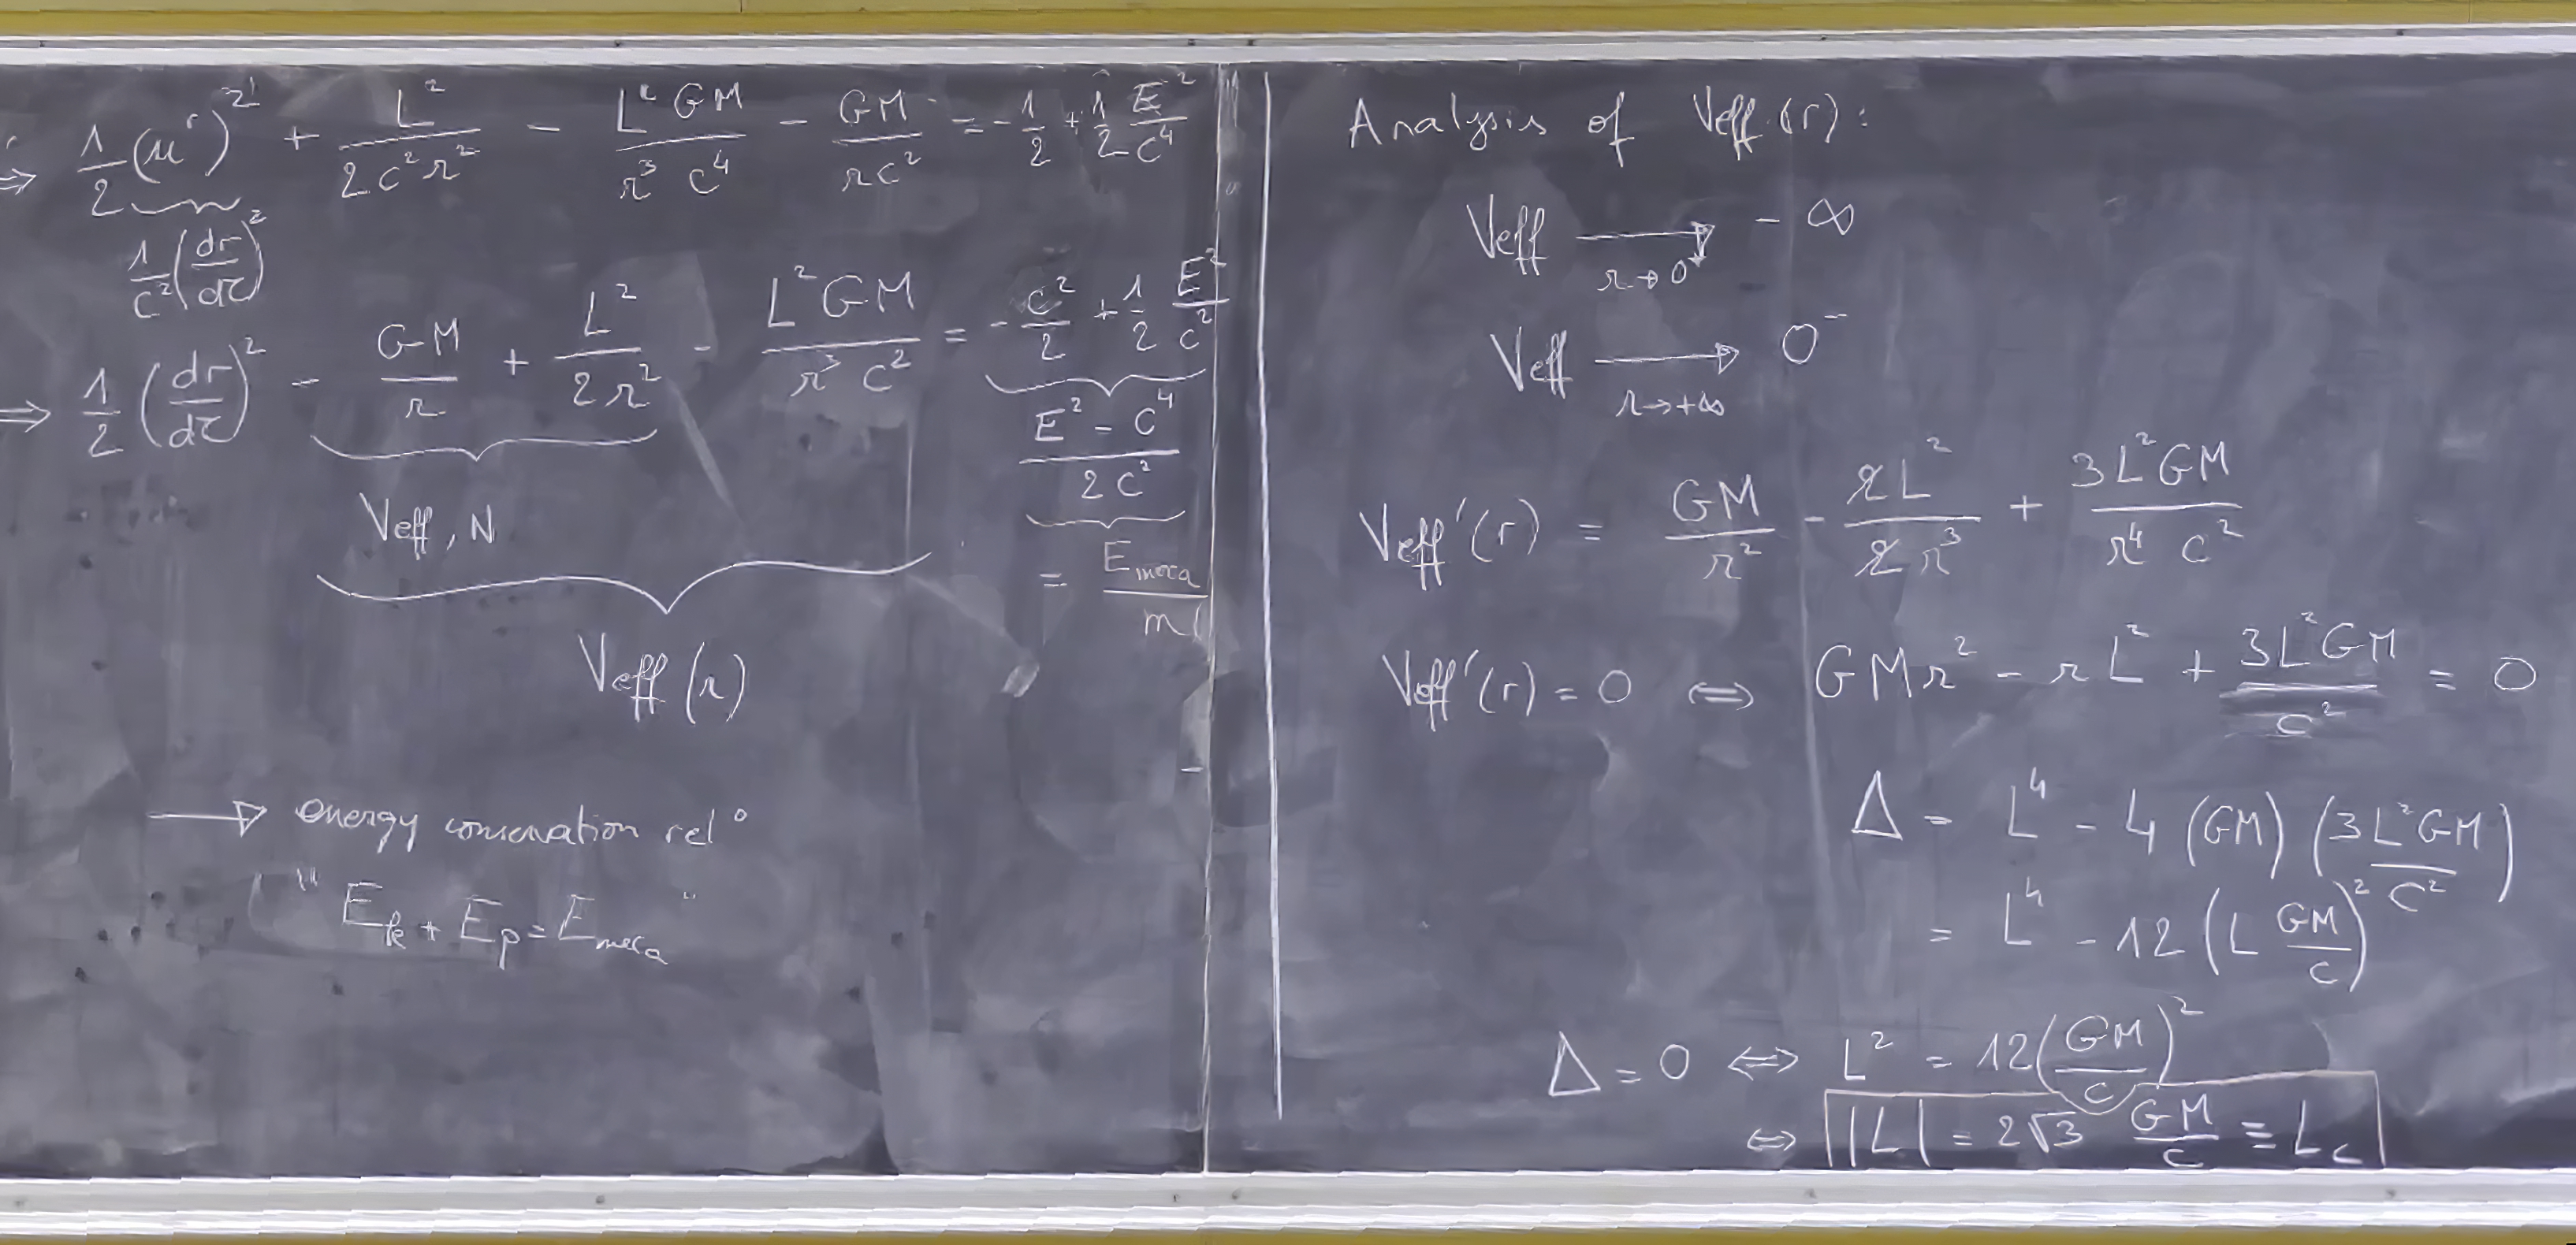 ⇒ 1/2 (u^r)^2 + L^2/(2c^2r^2) - L^2GM/(r^3 c^4) - GM/(rc^2) = -1/2 + 1/2 E^2/c^4
1/c^2 (dr/dτ)^2
⇒ 1/2 (dr/dτ)^2 - GM/r + L^2/(2r^2) - L^2GM/(r^3 c^2) = -c^2/2 + 1/2 E^2/c^2
(E^2 - c^4)/(2c^2)
Veff, N
= E_meca/m
Veff(r)
→ energy conservation rel°
"E_k + E_p = E_meca"
Analysis of Veff(r):
Veff → -∞
r→0^+
Veff → 0^-
r→+∞
Veff'(r) = GM/r^2 - 2L^2/(2r^3) + 3L^2GM/(r^4 c^2)
Veff'(r) = 0 ⇔ GMr^2 - rL^2 + 3L^2GM/c^2 = 0
Δ = L^4 - 4(GM)(3L^2GM/c^2)
= L^4 - 12(L GM/c)^2
Δ = 0 ⇔ L^2 = 12(GM/c)^2
⇔ |L| = 2√3 GM/c ≡ L_c